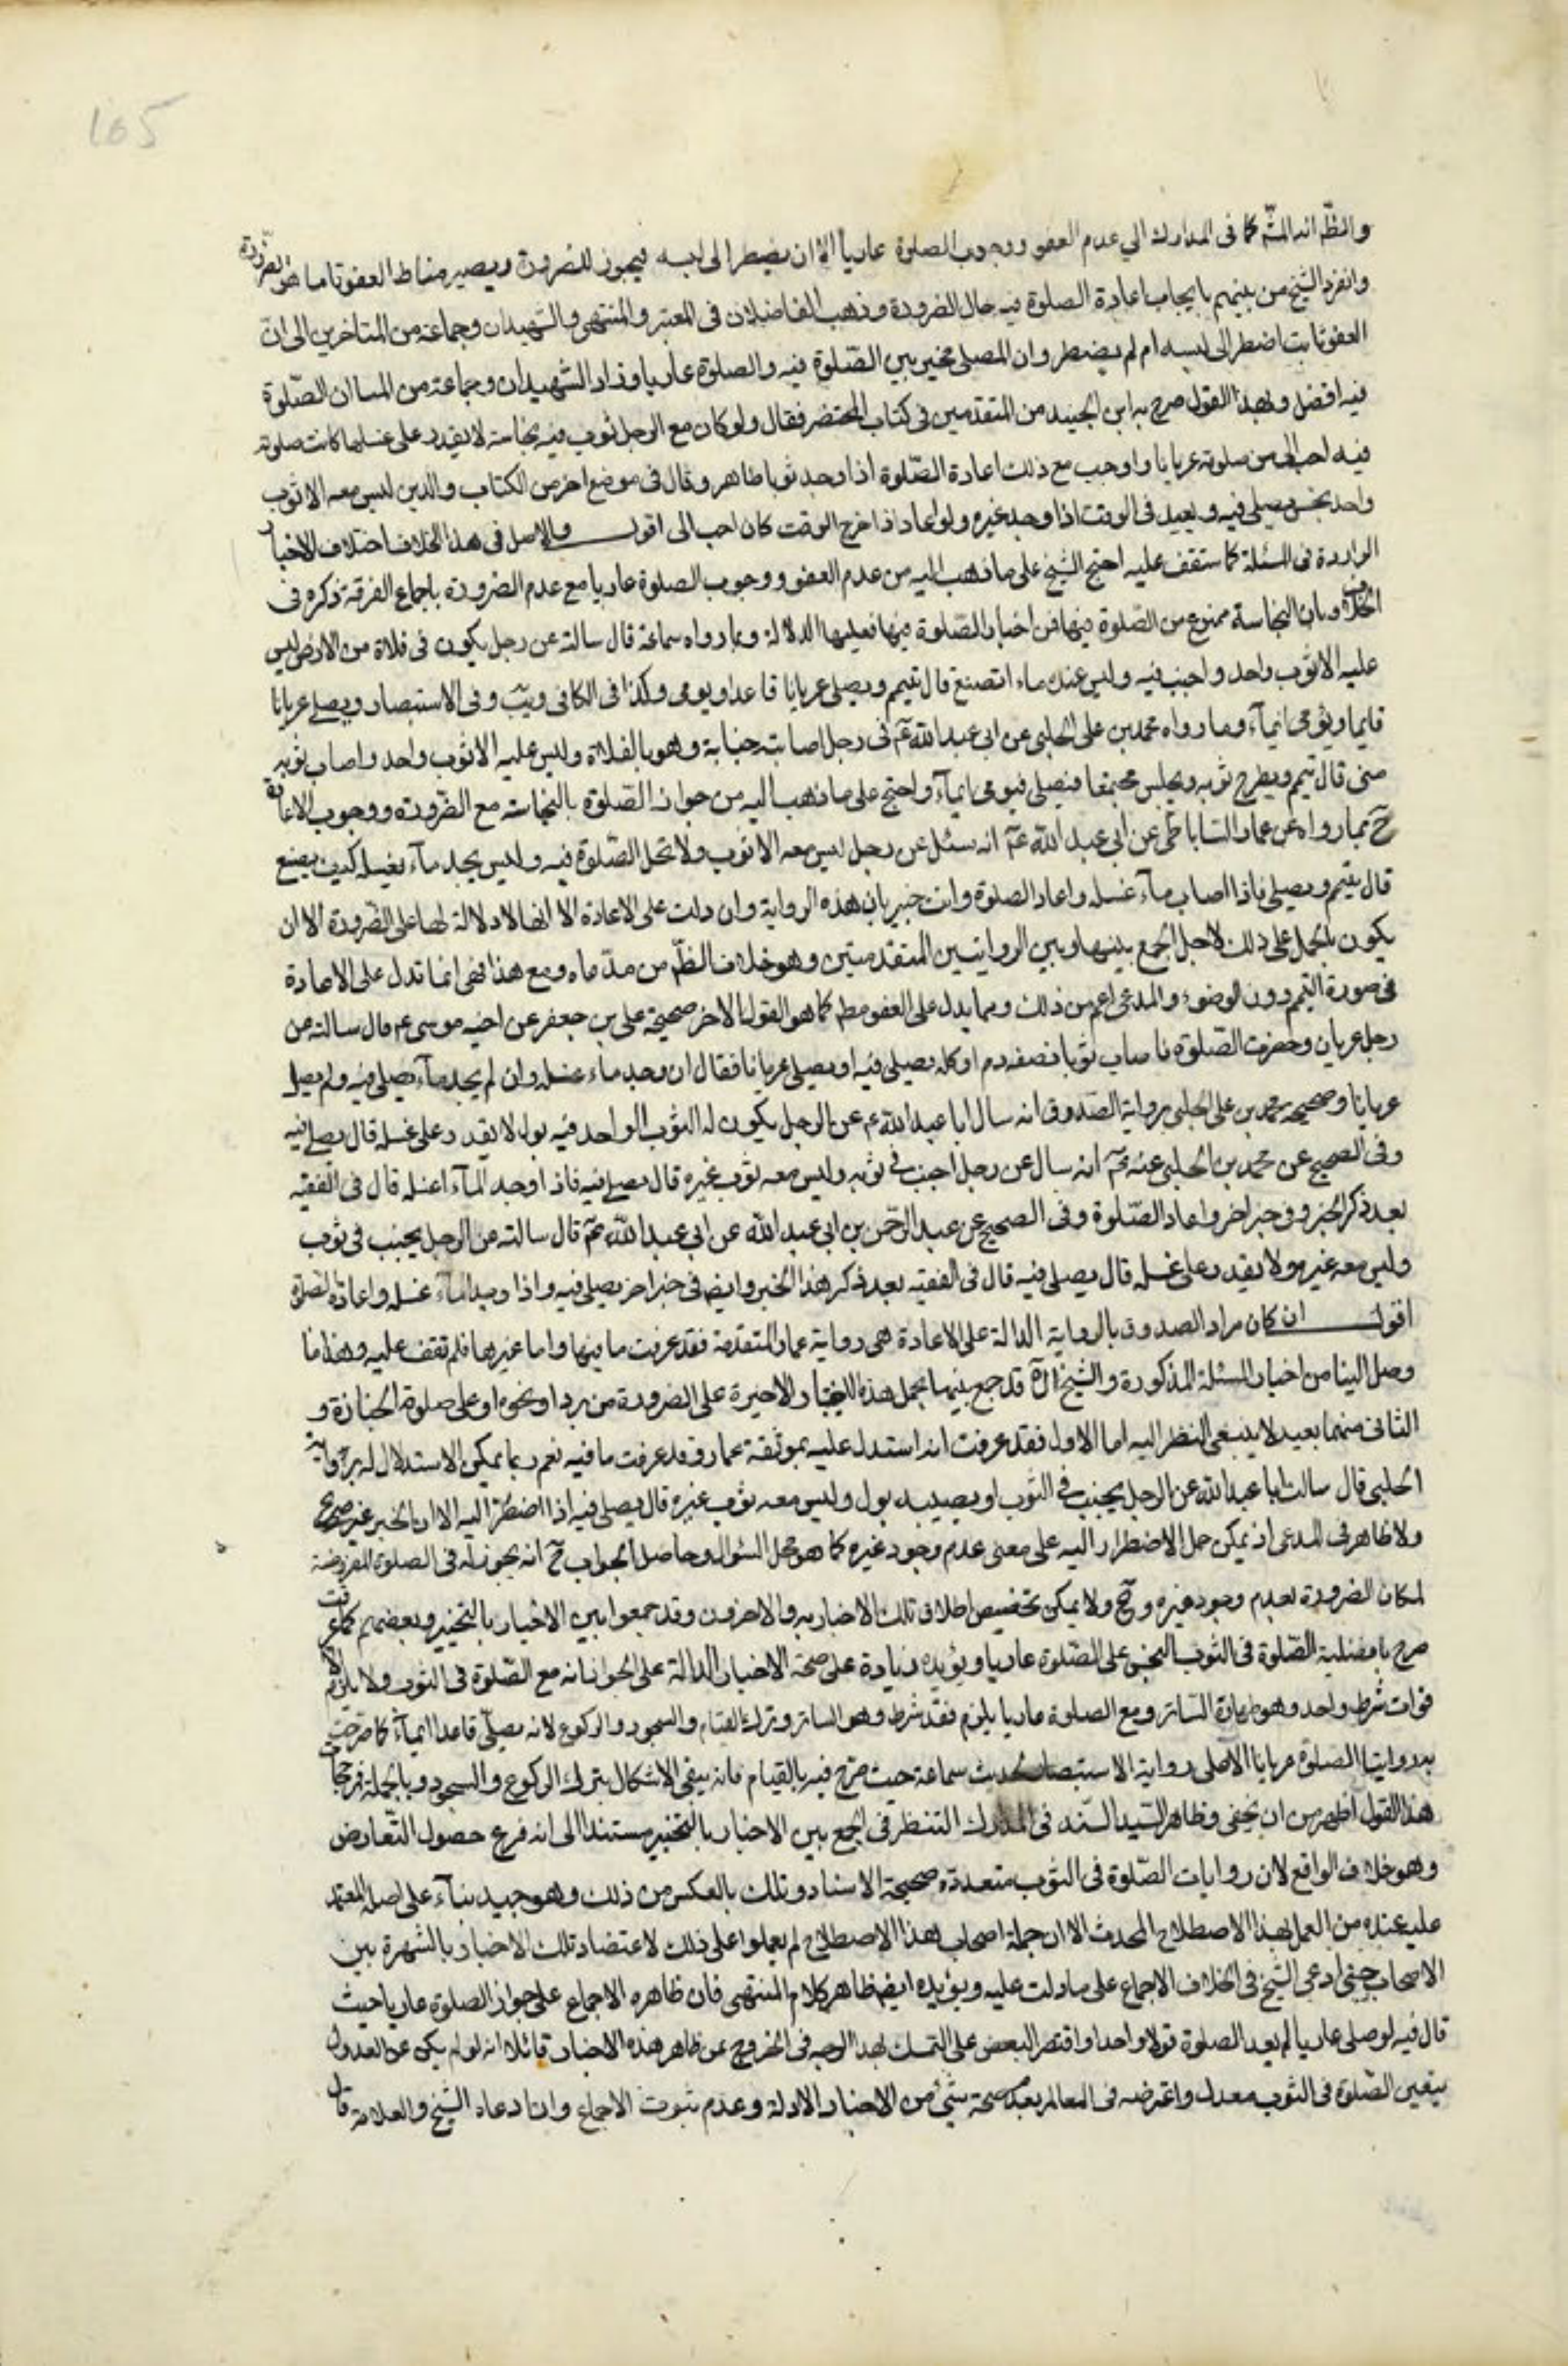 165
والظّ انه المش كما فى المدارك الي عدم العفو ووجوب الصلوة عاريا الا ان يضطر الى لبسه فيجوز للضرورة ويصير مناط العفو
وانفرد الشيخ من بينهم بايجاب اعادة الصلوة فيه حال الضرورة وذهب الفاضلان فى المعتبر والمنتهى والشهيدان وجماعة من المتاخرين الى ان
العفو ثابت اضطر الى لبسه ام لم يضطر وان المصلى مخير بين الصّلوة فيه والصلوة عاريا وزاد الشهيدان وجماعة من ان الصّلوة
فيه افضل وبهذا القول صرح به ابن الجنيد من المتقدمين فى كتاب المختصر فقال ولو كان مع الرجل ثوب فيه نجاسة لا يقدر على غسلها كانت صلوته
فيه احب الى من صلوته عريانا واوجب مع ذلك اعادة الصّلوة اذا وجد ثوبا طاهر وقال فى موضع اخر من الكتاب والذين ليس معه الا ثوب
واحد نجس يصلى فيه ويعيد فى الوقت اذا وجد غيره ولو اعاد اذا خرج الوقت كان احب الى اقول والاصل فى هذا الخلاف اختلاف الاخبار
الواردة فى المسئلة كما ستقف عليه احتج الشيخ على ما ذهب اليه من عدم العفو ووجوب الصلوة عاريا مع عدم الضرورة باجماع الفرقة ذكره فى
الخلاف وبان النجاسة ممنوع من الصّلوة فيها فمن اخبار الصّلوة فيها فعليها الدلالة وبما رواه سماعة قال سالته عن رجل يكون فى فلاة من الارض ليس
عليه الا ثوب واحد واجنب فيه وليس عنده ماء ايصنع قال تيمم ويصلى عريانا قاعدا ويومى وكذا فى الكافى ويب وفى الاستبصار ويصلى عريانا
قايما ويومى ايمآء وما رواه محمد بن على الحلبى عن ابى عبد الله عم فى رجل اصابته جنابة وهو بالفلاة وليس عليه الا ثوب واحد واصاب ثوبه
منى قال تيمم ويطرح ثوبه ويجلس مجتمعا فيصلى فيومى ايمآء واحتج على ما ذهب اليه من جواز الصّلوة بالنجاسة مع الضرورة ووجوب الاعادة
ح بما رواه عن عمار الساباطى عن ابى عبد الله عم انه سئل عن رجل ليس معه الا ثوب ولا تحل الصّلوة فيه وليس يجد مآء يغسله كيف يصنع
قال يتيمم ويصلى فاذا اصاب مآء غسله واعاد الصلوة وانت خبير بان هذه الرواية وان دلت على الاعادة الا انها لا دلالة لها على الضرورة الا ان
يكون بالحمل على ذلك لاجل الجمع بينها وبين الروايتين المتقدمتين وهو خلاف الظّ من مدّعاه ومع هذا فهى انما تدل على الاعادة
فى صورة التيمم دون الوضوء والمدعى اعم من ذلك ومما يدل على العفو مطم كما هو القول الاخر صحيحة على بن جعفر عن اخيه موسى عم قال سالته عن
رجل عريان وحضرت الصّلوة فاصاب ثوبا نصفه دم او كله يصلى فيه او يصلى عريانا فقال ان وجد ماء غسله وان لم يجد مآء يصلى فيه ولم يصل
عريانا وصحيحة محمد بن على الحلبى برواية الصّدوق انه سال ابا عبد الله عم عن الرجل يكون له الثوب الواحد فيه بول لا يقدر على غسله قال يصلى فيه
وفى الصحيح عن محمد بن الحلبى عنه عم انه سال عن رجل اجنب فى ثوبه وليس معه ثوب غيره قال يصلى فيه فاذا وجد المآء غسله قال فى الفقيه
بعد ذكر الخبر وفى خبر اخر واعاد الصّلوة وفى الصحيح عن عبد الرحمن بن ابى عبد الله عن ابى عبد الله عم قال سالته عن الرجل يجنب فى ثوب
وليس معه غيره ولا يقدر على غسله قال يصلى فيه قال فى الفقيه بعد ذكر هذا الخبر وايض فى خبر اخر يصلى فيه واذا وجد المآء غسله واعاد الصلوة
اقول ان كان مراد الصدوق بالرواية الدالة على الاعادة هى رواية عمار المتقدمة فقد عرفت ما فيها واما غيرها فلم نقف عليه وهذا ما
وصل الينا من اخبار المسئلة المذكورة والشيخ قد جمع بينهما بحمل هذه الاخبار الاخيرة على الضرورة من برد او نحوه او على صلوة الجنازة و
الثانى منهما بعيد لا ينبغى النظر اليه اما الاول فقد عرفت انه استدل عليه بموثقة عمار وقد عرفت ما فيه نعم ربما يمكن الاستدلال له برواية
الحلبى قال سالت ابا عبد الله عن الرجل يجنب فى الثوب او يصيبه بول وليس معه ثوب غيره قال يصلى فيه اذا اضطر اليه الا ان الخبر غير صريح
ولا ظاهر فى المدعى اذ يمكن حمل الاضطرار اليه على معنى عدم وجود غيره كما هو محل السؤال وحاصل الجواب ح انه يجوز له فى الصلوة المفروضة
لمكان الضرورة بعدم وجود غيره وح ولا يمكن تخصيص اطلاق تلك الاخبار به والاخرون وقد جمعوا بين الاخبار بالتخيير وبعضهم كما عرفت
صرح بافضلية الصّلوة فى الثوب النجس على الصّلوة عاريا ويؤيده زيادة على صحة الاخبار الدالة على الجواز انه مع الصّلوة فى الثوب ولا يلزم الا
فوات شرط واحد وهو طهارة الساتر ومع الصلوة عاريا يلزم فقد شرط وهو الساتر وترك القيام والسجود والركوع لانه يصلّى قاعدا ايمآء كما صرحت
به روايتا الصلوة عريانا الا على رواية الاستبصار لحديث سماعة حيث صرح فيه بالقيام فانه يبقى الاشكال بترك الركوع والسجود وبالجملة فرجحان
هذا القول اظهر من ان يخفى وظاهر السّيد السّند فى المدارك التنظر فى الجمع بين الاخبار بالتخيير مستندا الى انه فرع حصول التّعارض
وهو خلاف الواقع لان روايات الصّلوة فى الثوب متعددة صحيحة الاسناد وتلك بالعكس من ذلك وهو جيد بنآء على اصله المعتمد
عليه عنده من العمل بهذا الاصطلاح المحدث الا ان جملة اصحاب هذا الاصطلاح لم يعملوا على ذلك لاعتضاد تلك الاخبار بالشهرة بين
الاصحاب حتى ادعى الشيخ فى الخلاف الاجماع على ما دلت عليه ويؤيده ايض ظاهر كلام المنتهى فان ظاهره الاجماع على جواز الصلوة عاريا حيث
قال فيه لو صلى عاريا لم يعد الصلوة قولا واحدا واقتصر البعض على التمسك بهذا الوجه فى الخروج عن ظاهر هذه الاخبار قائلا انه لو لم يكن عن العدول
بتعين الصّلوة فى الثوب معدل واعترضه فى المعالم بعد صحة شئ من الاخبار الادلة وعدم ثبوت الاجماع وان ادعاه الشيخ والعلامة قال